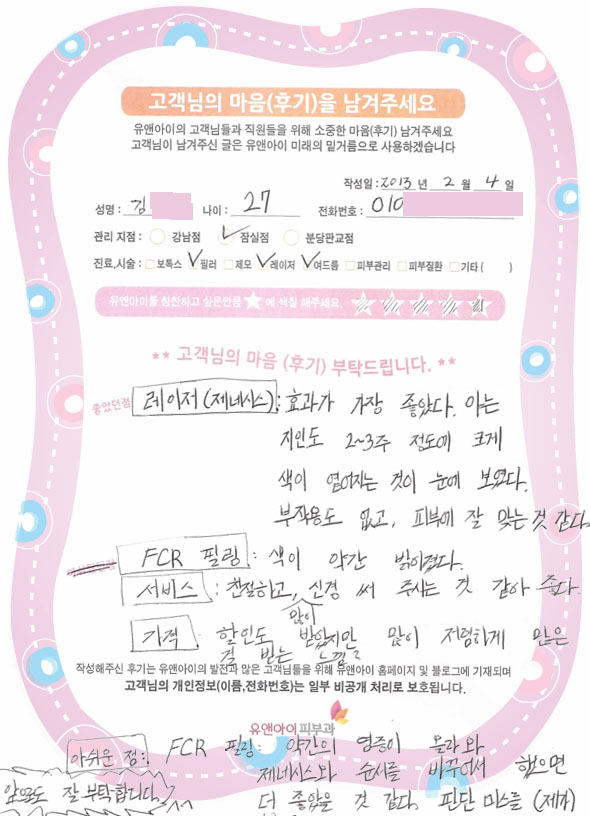 고객님의 마음(후기)을 남겨주세요
유앤아이의 고객님들과 직원들을 위해 소중한 마음(후기) 남겨주세요
고객님이 남겨주신 글은 유앤아이 미래의 밑거름으로 사용하겠습니다
작성일 : 2013 년 2 월 4 일
성명 : 김 나이 : 27 전화번호 : 010
관리 지점 : 강남점 잠실점 분당판교점
진료,시술 : 보톡스 필러 제모 레이저 여드름 피부관리 피부질환 기타 ( )
유앤아이를 칭찬하고 싶은만큼 ★ 에 색칠 해주세요.
** 고객님의 마음 (후기) 부탁드립니다. **
좋았던점 레이저(제네시스) : 효과가 가장 좋았다. 아는
지인도 2~3주 정도에 크게
색이 옅어지는 것이 눈에 보였다.
부작용도 없고, 피부에 잘 맞는 것 같다.
FCR 필링 : 색이 약간 밝아졌다.
서비스 : 친절하고, 신경 써 주시는 것 같아 좋다.
많이
가격 할인도 받았지만 많이 저렴하게 받은
걸 받는 느낌?
작성해주신 후기는 유앤아이의 발전과 많은 고객님들을 위해 유앤아이 홈페이지 및 블로그에 기재되며
고객님의 개인정보(이름,전화번호)는 일부 비공개 처리로 보호됩니다.
유앤아이피부과
아쉬운 점 : FCR 필링 : 약간의 염증이 올라와
제네시스와 순서를 바꾸어서 했으면
앞으로도 잘 부탁합니다. 더 좋았을 것 같다. 판단 미스를 (제가)